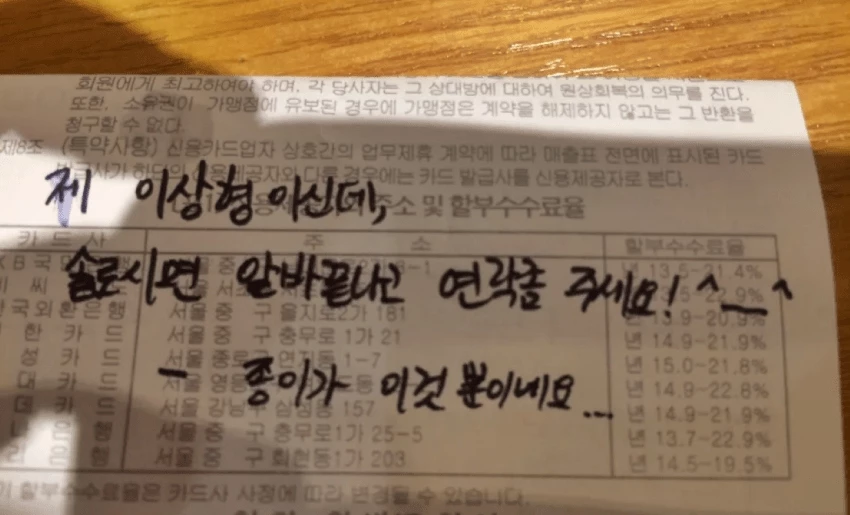 회원에게 최고하여야 하며, 각 당사자는 그 상대방에 대하여 원상회복의 의무를 진다.
또한, 소유권이 가맹점에 유보된 경우에 가맹점은 계약을 해제하지 않고는 그 반환을
청구할 수 없다.
제8조 (특약사항) 신용카드업자 상호간의 업무제휴 계약에 따라 매출표 전면에 표시된 카드
다른 경우에는 카드 발급사를 신용제공자로 본다.
제 이상형이신데,
주소 및 할부수수료율
카 드 사 주 소 할부수수료율
솔로시면 알바끝나고 연락좀 주세요! ^_^
년 13.5-21.4%
국외환은행 서울 중 구 을지로2가 181 년 13.9-20.9%
한 카 드 서울 중 구 충무로 1가 21 년 14.9-21.9%
성 카 드 서울 종로 연지동 1-7 년 15.0-21.8%
- 종이가 이것 뿐이네요...
대 카 드 서울 영등 년 14.9-22.8%
데 카 드 서울 강남구 삼성동 157 년 14.9-21.9%
은 행 서울 중 구 충무로1가 25-5 년 13.7-22.9%
은 행 서울 중 구 회현동1가 203 년 14.5-19.5%
할부수수료율은 카드사 사정에 따라 변경될 수 있습니다.